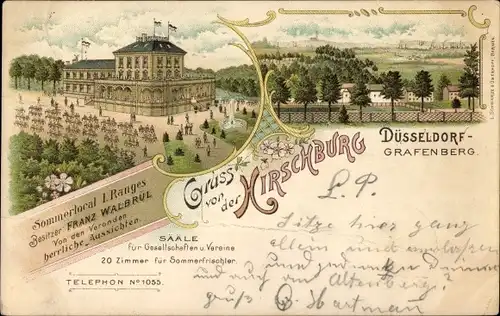 Gruss
von
der
HIRSCHBURG
DÜSSELDORF-
GRAFENBERG.
Sommerlocal I. Ranges
Besitzer FRANZ WALBRÜL
Von den Veranden
herrliche Aussichten.
SÄÄLE
für Gesellschaften u. Vereine
20 Zimmer für Sommerfrischler.
TELEPHON No 1055.
L. P.
Sitze hier ganz
allein und
und
und auch im Altenberg.
gruß Hartman